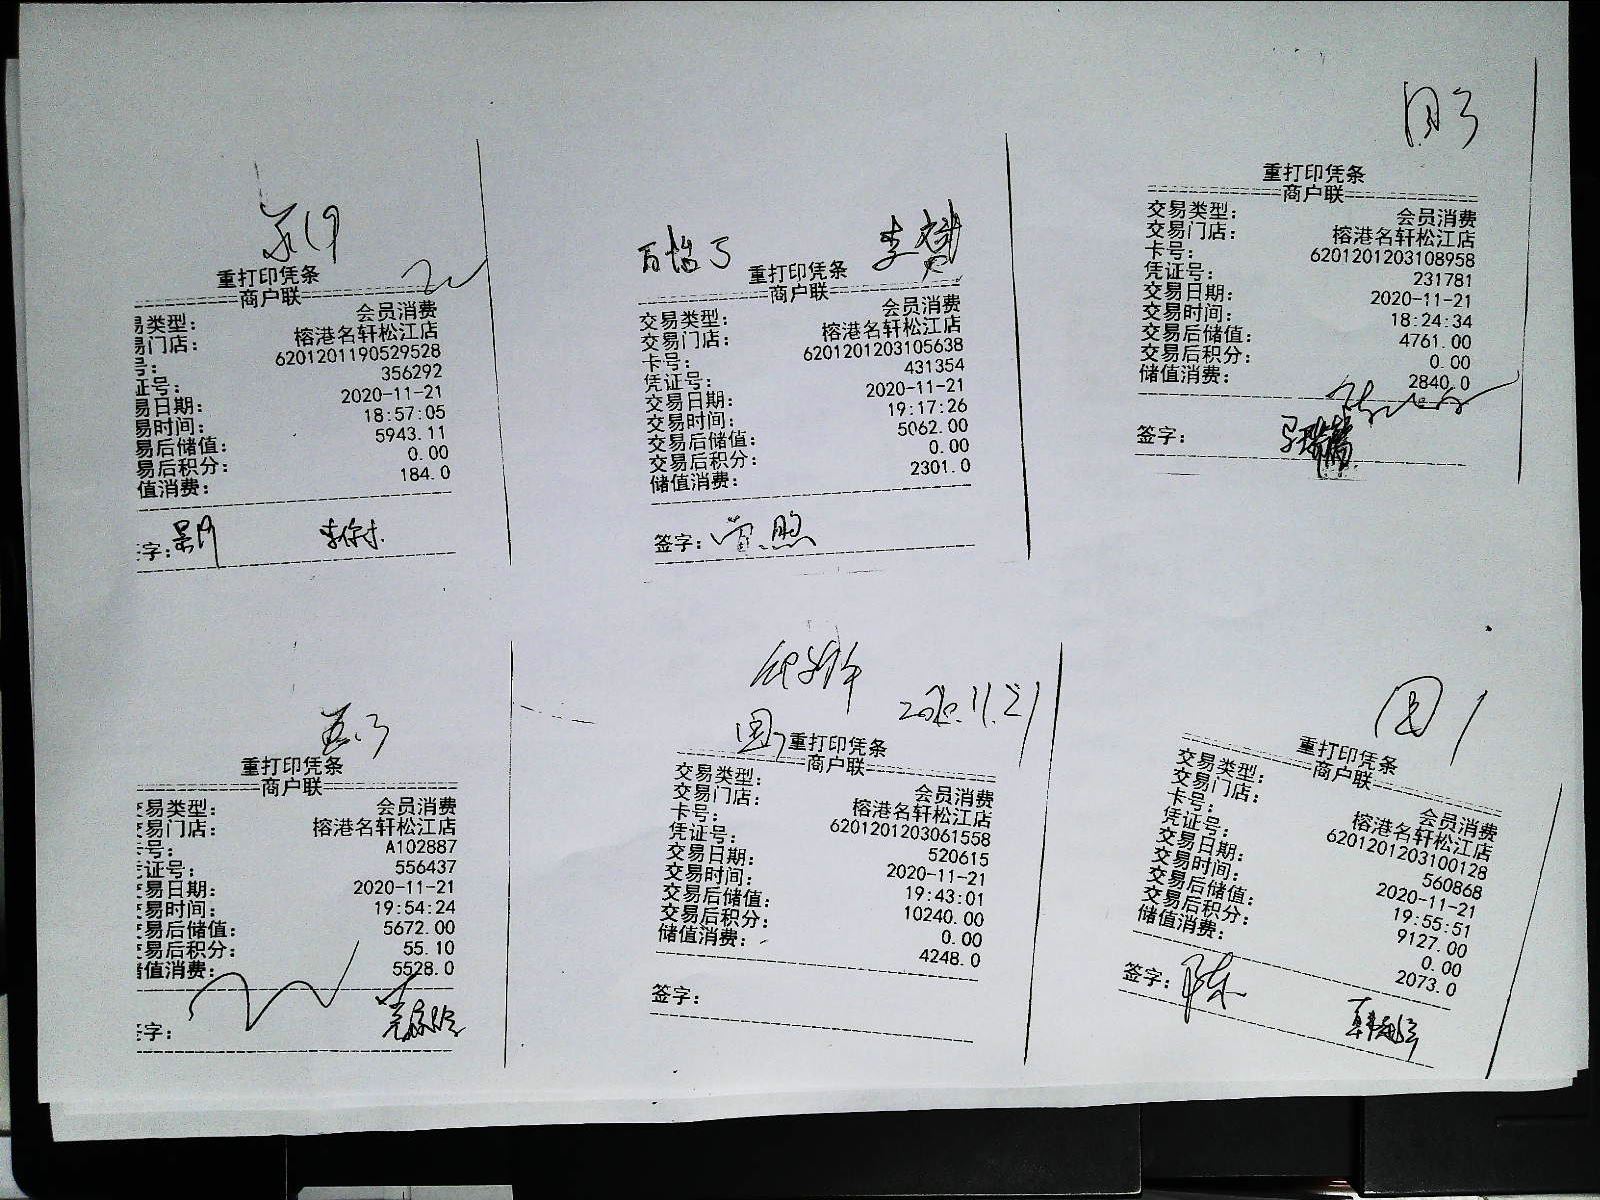 重打印凭条
商户联
易类型: 会员消费
易门店: 榕港名轩松江店
号: 6201201190529528
证号: 356292
易日期: 2020-11-21
易时间: 18:57:05
易后储值: 5943.11
易后积分: 0.00
值消费: 184.0
字:
李 重打印凭条
商户联
交易类型: 会员消费
交易门店: 榕港名轩松江店
卡号: 6201201203105638
凭证号: 431354
交易日期: 2020-11-21
交易时间: 19:17:26
交易后储值: 5062.00
交易后积分: 0.00
储值消费: 2301.0
签字:
重打印凭条
商户联
交易类型: 会员消费
交易门店: 榕港名轩松江店
卡号: 6201201203108958
凭证号: 231781
交易日期: 2020-11-21
交易时间: 18:24:34
交易后储值: 4761.00
交易后积分: 0.00
储值消费: 2840.0
签字:
重打印凭条
商户联
交易类型: 会员消费
交易门店: 榕港名轩松江店
号: A102887
证号: 556437
交易日期: 2020-11-21
交易时间: 19:54:24
交易后储值: 5672.00
交易后积分: 55.10
储值消费: 5528.0
字:
2020.11.21
重打印凭条
商户联
交易类型: 会员消费
交易门店: 榕港名轩松江店
卡号: 6201201203061558
凭证号: 520615
交易日期: 2020-11-21
交易时间: 19:43:01
交易后储值: 10240.00
交易后积分: 0.00
储值消费: 4248.0
签字:
重打印凭条
商户联
交易类型: 会员消费
交易门店: 榕港名轩松江店
卡号: 6201201203100128
凭证号: 560868
交易日期: 2020-11-21
交易时间: 19:55:51
交易后储值: 9127.00
交易后积分: 0.00
储值消费: 2073.0
签字: